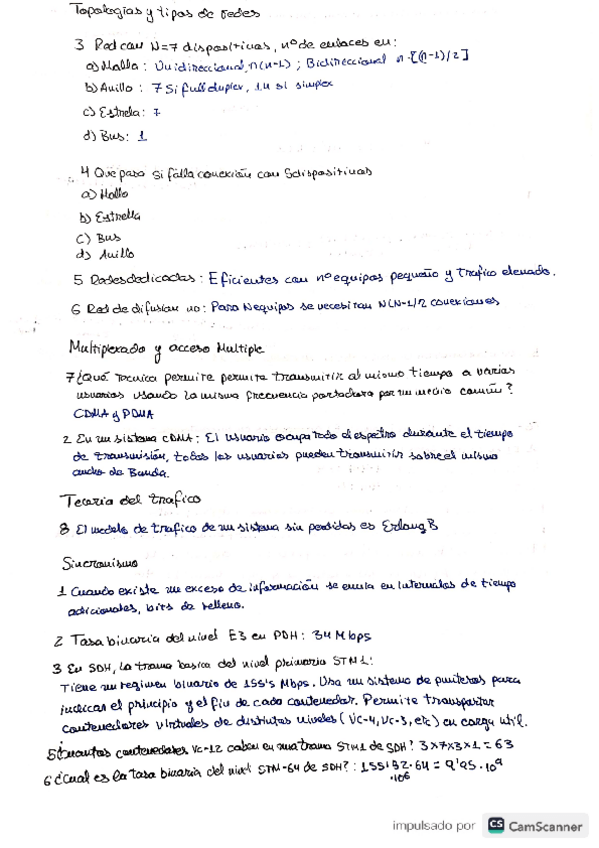 Topologías y tipos de redes
3 Red con N=7 dispositivos, nº de enlaces en:
a) Malla: Unidireccional, n(n-1); Bidireccional n·[(n-1)/2]
b) Anillo: 7 si full duplex, 14 si simplex
c) Estrela: 7
d) Bus: 1
4 Que pasa si falla conexión con 5 dispositivos
a) Malla
b) Estrella
c) Bus
d) Anillo
5 Redes dedicadas: Eficientes con nº equipos pequeño y trafico elevado.
6 Red de difusion no: Para N equipos se necesitan N(N-1/2 conexiones
Multiplexado y acceso Multiple
7 ¿Qué Tecnica permite permite transmitir al mismo tiempo a varios
usuarios usando la misma frecuencia portadora por un medio común?
CDMA y PDMA
2 En un sistema CDMA: El usuario ocupa todo el espectro durante el tiempo
de transmisión, todos los usuarios pueden transmitir sobre el mismo
ancho de Banda.
Teoria del trafico
8 El modelo de trafico de un sistema sin perdidas es Erlang B
Sincronismo
1 Cuando existe un exceso de información se envia en intervalos de tiempo
adicionales, bits de relleno.
2 Tasa binaria del nivel E3 en PDH: 34 Mbps
3 En SDH, la trama basica del nivel primario STM1:
Tiene un regimen binario de 155's Mbps. Usa un sistema de punteros para
indicar el principio y el fin de cada contenedor. Permite transportar
contenedores virtuales de distintos niveles (VC-4, VC-3, etc) en carga util.
5 ¿Cuantos contenedores VC-12 caben en una trama STM1 de SDH? 3x7x3x1 = 63
6 ¿Cual es la tasa binaria del nivel STM-64 de SDH?: 155'52·64 = 9'95·10⁹
·10⁶
impulsado por CS CamScanner